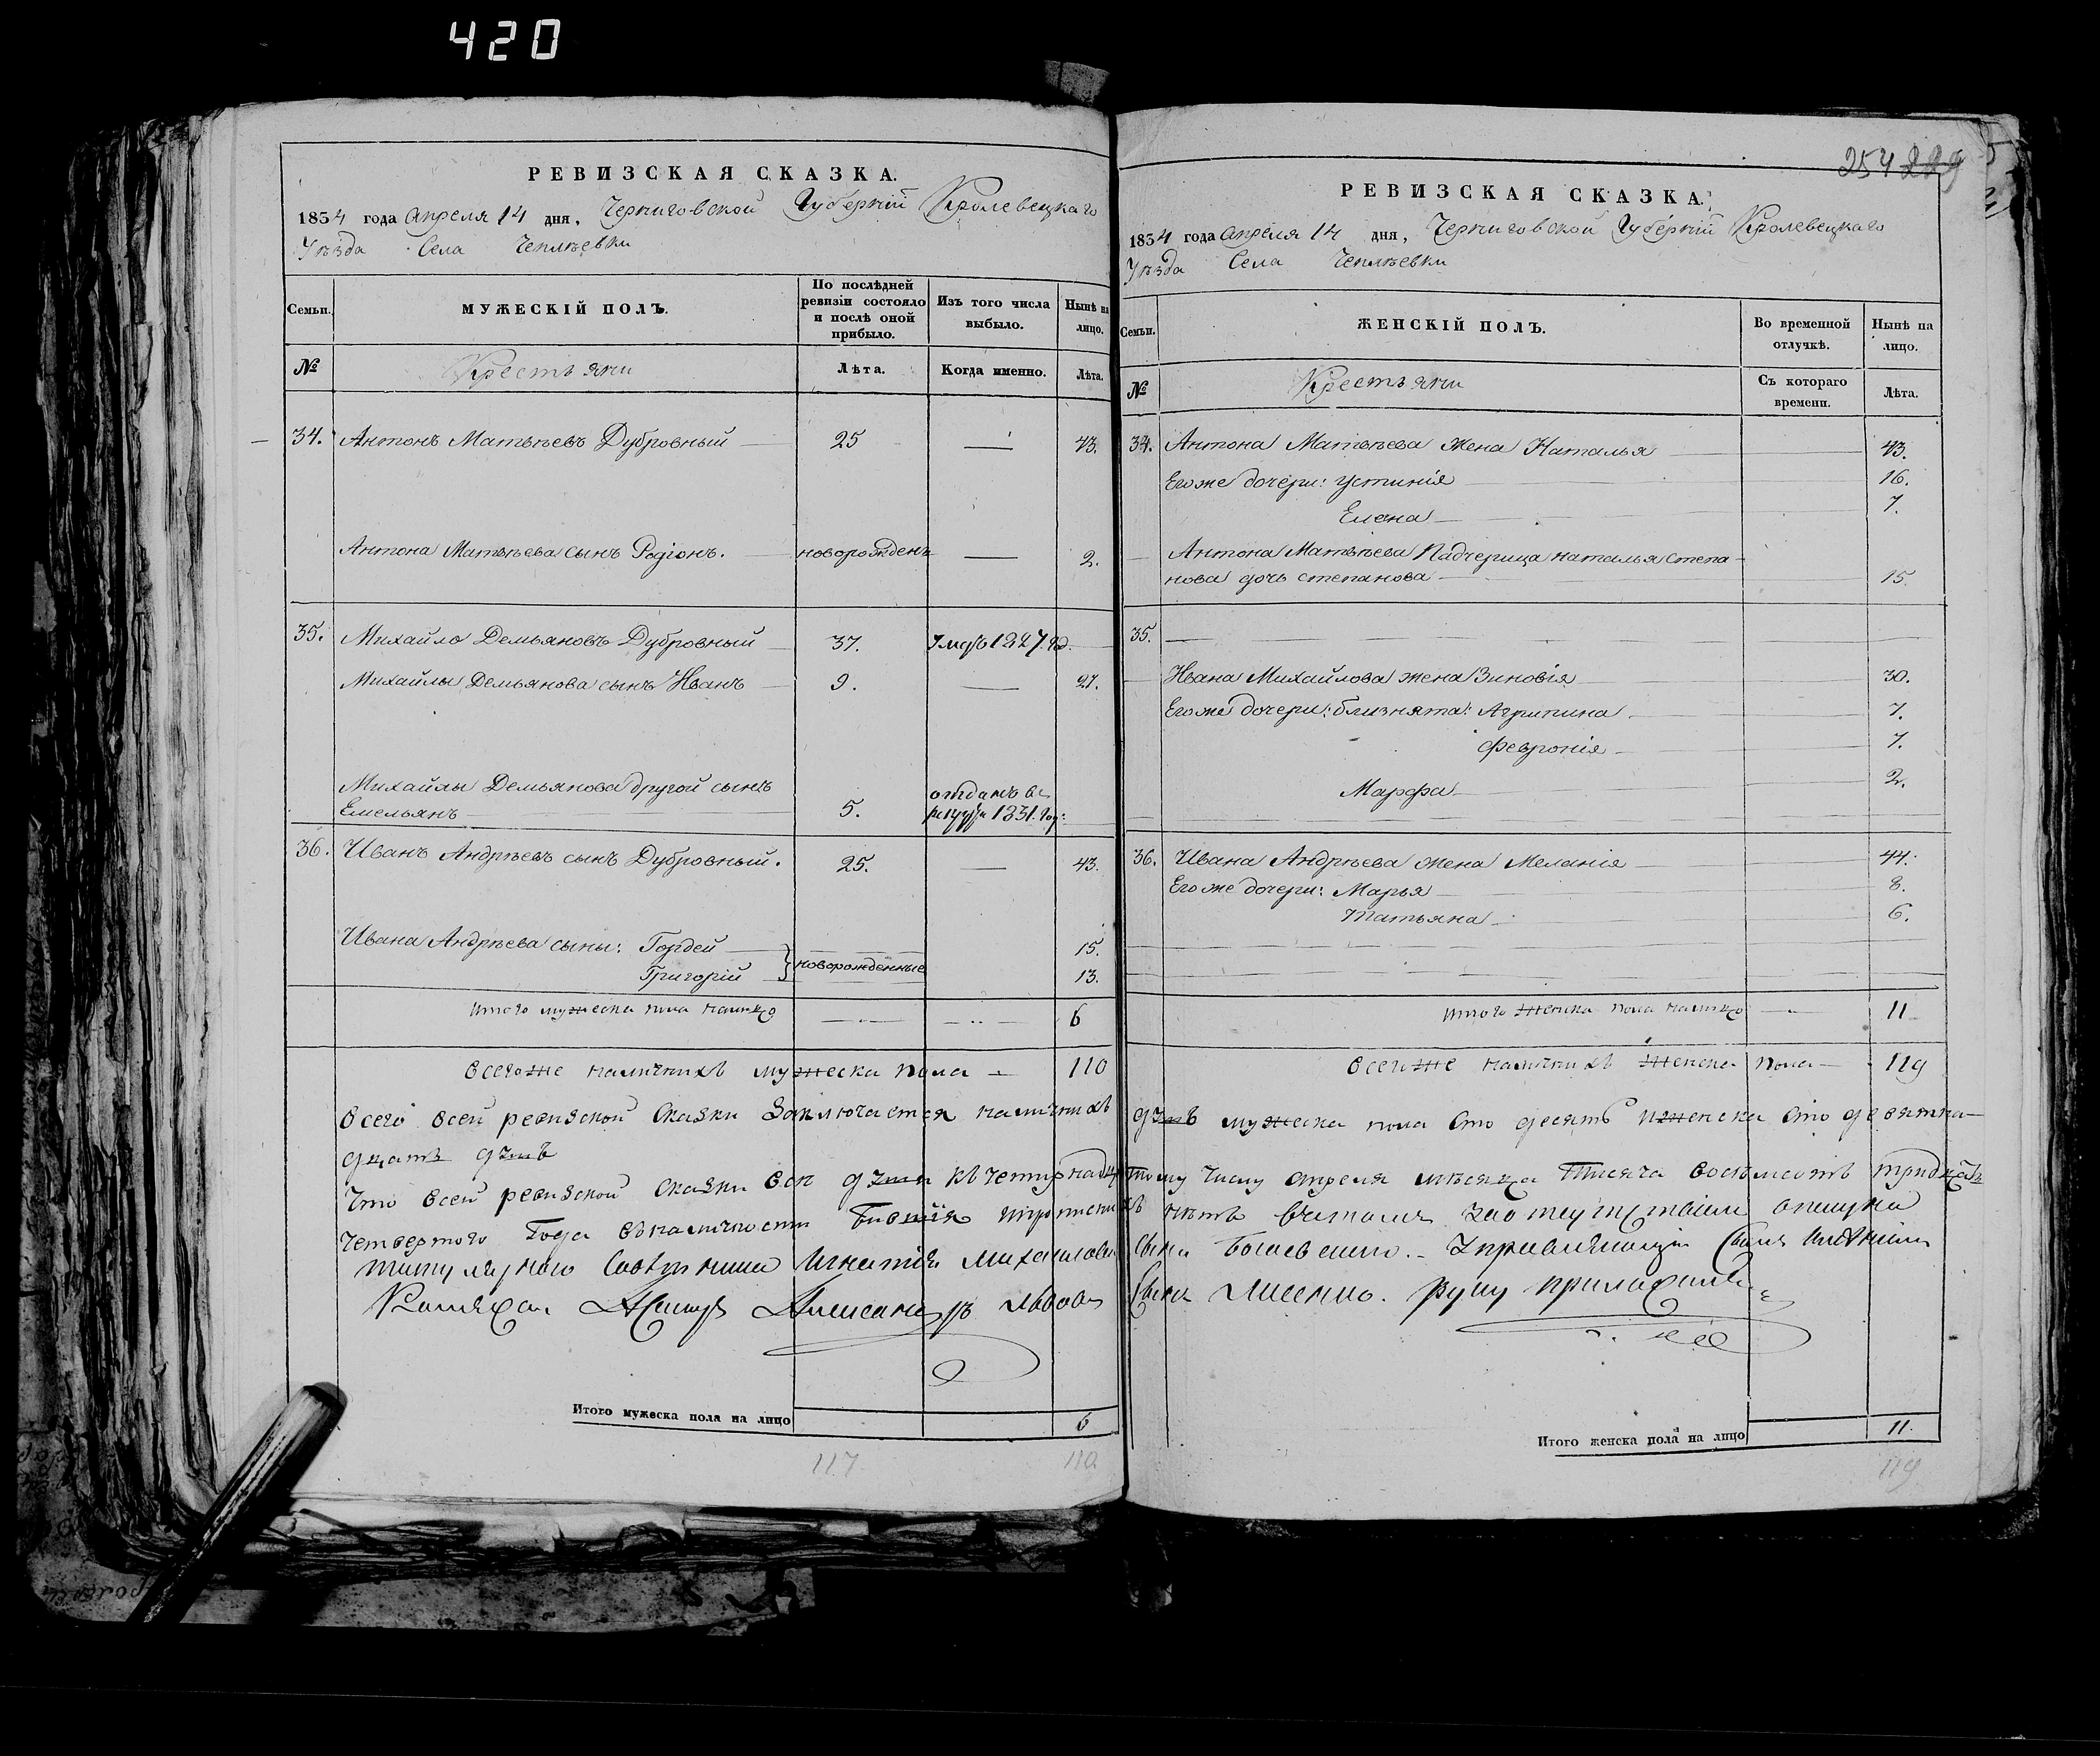 420
РЕВИЗСКАЯ СКАЗКА.
1834 года Апреля 14 дня, Черниговской Губерніи Кролевецкаго
Уѣзда Села Чеплѣевки
Семьи.
МУЖЕСКІЙ ПОЛЪ.
По послѣдней ревизіи состояло и послѣ оной прибыло.
Изъ того числа выбыло.
Нынѣ на лицо.
№
Крестьяни
Лѣта.
Когда именно.
Лѣта.
34. Антонъ Матвѣевъ Дубровный 25 — 43.
Антона Матвѣева сынъ Родіонъ. новорожденъ — 2.
35. Михайло Демьяновъ Дубровный 37. 1827.
Михайлы Демьянова сынъ Иванъ 9. — 27.
Михайлы Демьянова другой сынъ отданъ в
Емельянъ 5. рекруты 1831. год:
36. Иванъ Андрѣевъ сынъ Дубровный. 25. — 43.
Ивана Андрѣева сыны: Гордей 15.
новорожденные
Григорій 13.
Итого мужеска пола налицо 6
Всего же наличнихъ мужеска пола — 110
Всего всей ревизской Сказки Заключается наличнихъ
Что всей ревизской Сказки все
Четвертого Года въ наличности
Игнатія Михайлова
Александръ Львовъ
Итого мужеска пола на лицо 6
117 110
254 229
РЕВИЗСКАЯ СКАЗКА.
1834 года Апреля 14 дня, Черниговской Губерніи Кролевецкаго
Уѣзда Села Чеплѣевки
Семьи.
ЖЕНСКІЙ ПОЛЪ.
Во временной отлучкѣ.
Нынѣ на лицо.
№
Крестьяни
Съ котораго времени.
Лѣта.
34. Антона Матвѣева жена Наталья 43.
Его же дочери: Устинія 16.
Елена 7.
Антона Матвѣева Падчерица Наталья Степа-
нова дочь Степанова 15.
35.
Ивана Михайлова жена Зиновія 30.
Его же дочери: близнята: Агрипина 7.
Февронія 7.
Марфа 2.
36. Ивана Андрѣева жена Меланія 44.
Его же дочери: Марья 8.
Татьяна 6.
Итого женска пола налицо — 11
Всего же наличнихъ женска пола — 119
мужеска пола сто десять и женска сто девятна-
тому числу Апреля мѣсяца Тисяча восѣмсотъ тридцать
сына Управляющій
сынъ руку приложилъ
Итого женска пола на лицо 11.
119